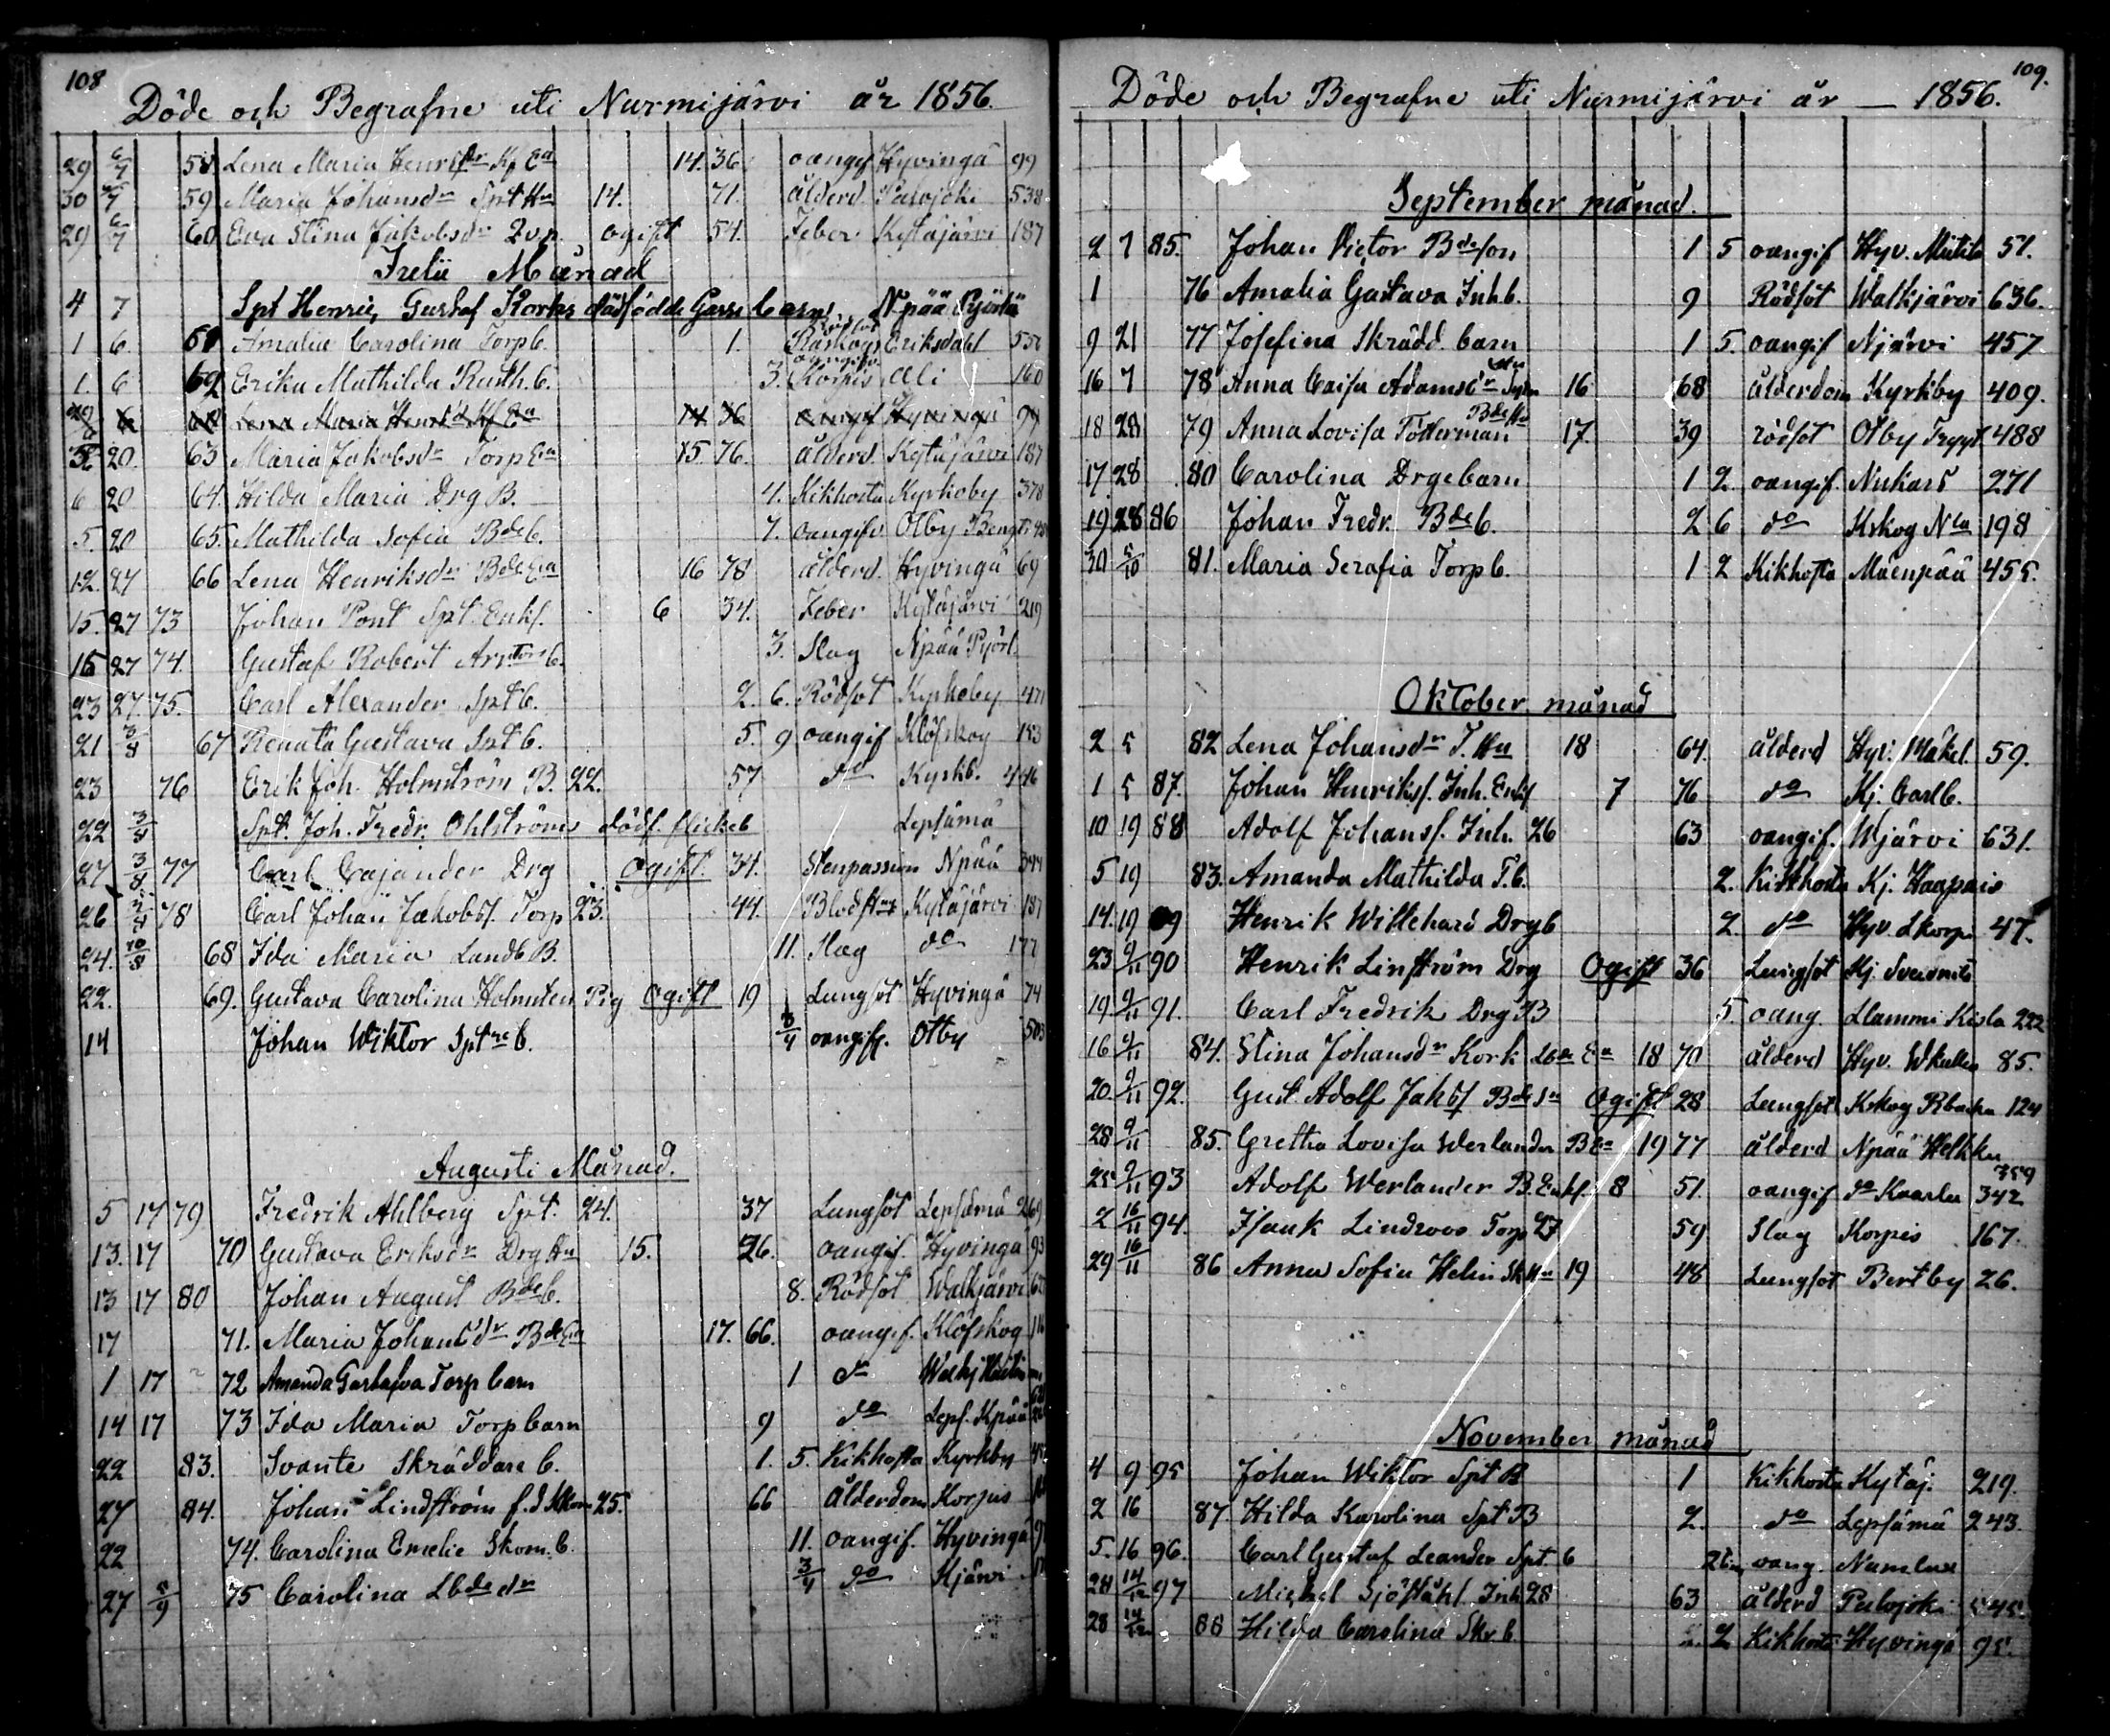 108
Döde och Begrafne uti Nurmijärvi år 1856.
29 6/7 58. Lena Maria Henrsdr Kf Ea 14. 36. oangif Hyvingä 99
30 6/7 59 Maria Johansdr Spt Hu 14. 71. ålderd Palojoki 538
29 6/7 60 Eva Stina Jakobsdr ogift 54. Feber Kytäjärvi 187
Julii Månad
4 7 Spt Henric Gustaf Korks dödfödde Gosse barn Npää
1 6. 61 Amalia Carolina Torp b. 1. Rödsot Raskog Eriksdahl 556
1. 6 62 Erika Mathilda b. 3. oangif. Korpis Ali 160
29/6 6 Lena Maria Henrsdr Kf Ea 14 36 oangif Hyvingä 99
20. 63 Maria Jakobsdr Torp Ea 15. 76. ålderd. Kytäjärvi 187
6 20 64. Hilda Maria Drg B. 4. Kikhosta Kyrkoby 378
5. 20 65. Mathilda Sofia Bde b. 7. oangifv. Otby Bengts
12. 27 66 Lena Henriksdr Bde Ea 16 78 ålderd. Hyvingä 69
15. 27 73 Johan Pont Spt. Enkl. 6 34. Feber Kytäjärvi 219
15 27 74. Gustaf Robert b. 3. Slag Npää Pyörl.
23 27. 75. Carl Alexander Spt b. 2. 6. Rödsot Kyrkoby 471
21 3/8 67 Renata Gustava Spt b. 5. 9 oangif Klöfskog 153
23 76 Erik Joh. Holmström B. 22. 57 do Kyrkb. 446
22 3/8 Spt. Joh. Fredr. Ohlströms dödf. flickeb Lepsämä
27 3/8 77 Carl Cajander Drg Ogift. 34. Stenpassion Npää 344
26 3/8 78 Carl Johan Jakobsf. Torp 23. 44. Kytäjärvi 187
24. 10/8 68 Ida Maria Landb B. 11. Slag do 177
22. 69. Gustava Carolina Holmsten Pig Ogift 19 Lungsot Hyvingä 74
14 Johan Wiktor Sptre b. 3/4 oangif. Otby 503
Augusti Månad.
5 17 79 Fredrik Ahlberg Spt. 24. 37 Lungsot Lepsämä 269
13. 17 70 Gustava Eriksdr Drg Hu 15. 26. oangif. Hyvinga 93
13 17 80 Johan August Bde b. 8. Rödsot Walkjärvi
17 71. Maria Johansdr Bde Ea 17. 66. oangif. Klöfskog
1 17 72 Amanda Gustafva Torp barn 1 do Walkj
14 17 73 Ida Maria Torp barn 9 do Leps. Kpää
22 83. Svante Skräddare b. 1. 5. Kikhosta Kyrkby
27 84. Johan Lindström f. d. Skom 25. 66 ålderdom Korpis
22 74. Carolina Emelie Skom. b. 11. oangif. Hyvingä
27 5/9 75 Carolina Lbde dr 3/4 do Kjärvi
109.
Döde och Begrafne uti Nurmijärvi år — 1856.
September månad.
2 7 85. Johan Victor Bdeson 1 5 oangif Hyv. 51.
1 76 Amalia Gustava Inh b. 9 Rödsot Walkjärvi 636.
9 21 77 Josefina Skrädd. barn 1 5. oangif Njärvi 457
16 7 78 Anna Caisa Adamsdr 16 68 ålderdom Kyrkby 409.
18 28 79 Anna Lovisa Totterman Bde Hu 17. 39 rödsot Otby 488
17 28 80 Carolina Drgebarn 1 2. oangif. Nukars 271
19 28 86 Johan Fredr. Bde b. 2 6 do Kskog Nla 198
30 5/10 81. Maria Serafia Torp b. 1 2 Kikhosta Mäenpää 455.
Oktober månad
2 5 82 Lena Johansdr T. Hu 18 64. ålderd Hyv. Mäkel. 59.
1 5 87. Johan Henriksf. Inh. Enkl 7 76 do Kj. Carlb.
10 19 88 Adolf Johansf. Inh. 26 63 oangif. Wjärvi 631.
5 19 83. Amanda Mathilda T. b. 2. Kikhosta Kj. Haapais
14. 19 89 Henrik Wittehard Drg b 2. do Hyv. Lkorp 47.
23 9/11 90 Henrik Linström Drg Ogift 36 Lungsot Kj.
19 9/11 91. Carl Fredrik Drg B 5. oang. Llammi 222
16 9/11 84. Stina Johansdr Kork Ea 18 70 ålderd Hyv. 85.
20. 9/11 92. Gust. Adolf Jakbsf Bde Sn Ogift 28 Lungsot Kskog 124
28 9/11 85. Gretha Lovisa Werlander B Ea 19 77 ålderd Npää
25 9/11 93 Adolf Werlander B. Enkl. 8 51. oangif do 359 342
2 16/11 94. Isaak Lindroos Torp 27 59 Slag Korpis 167.
29 16/11 86 Anna Sofia Helin Sk Hu 19 48 Lungsot Bertby 26.
November månad
4 9 95 Johan Wiktor Spt B 1 Kikhosta Kytäj. 219.
2 16 87 Hilda Karolina Spt B 2. do Lepsämä 243.
5. 16 96. Carl Gustaf Leander Spt. b oang. Numlax
28 14/12 97 Michel Sjöståhl Inh 28 63 ålderd Palojoki 545.
28 14/12 88 Hilda Carolina Skr b. 2 Kikhosta Hyvingä 95.